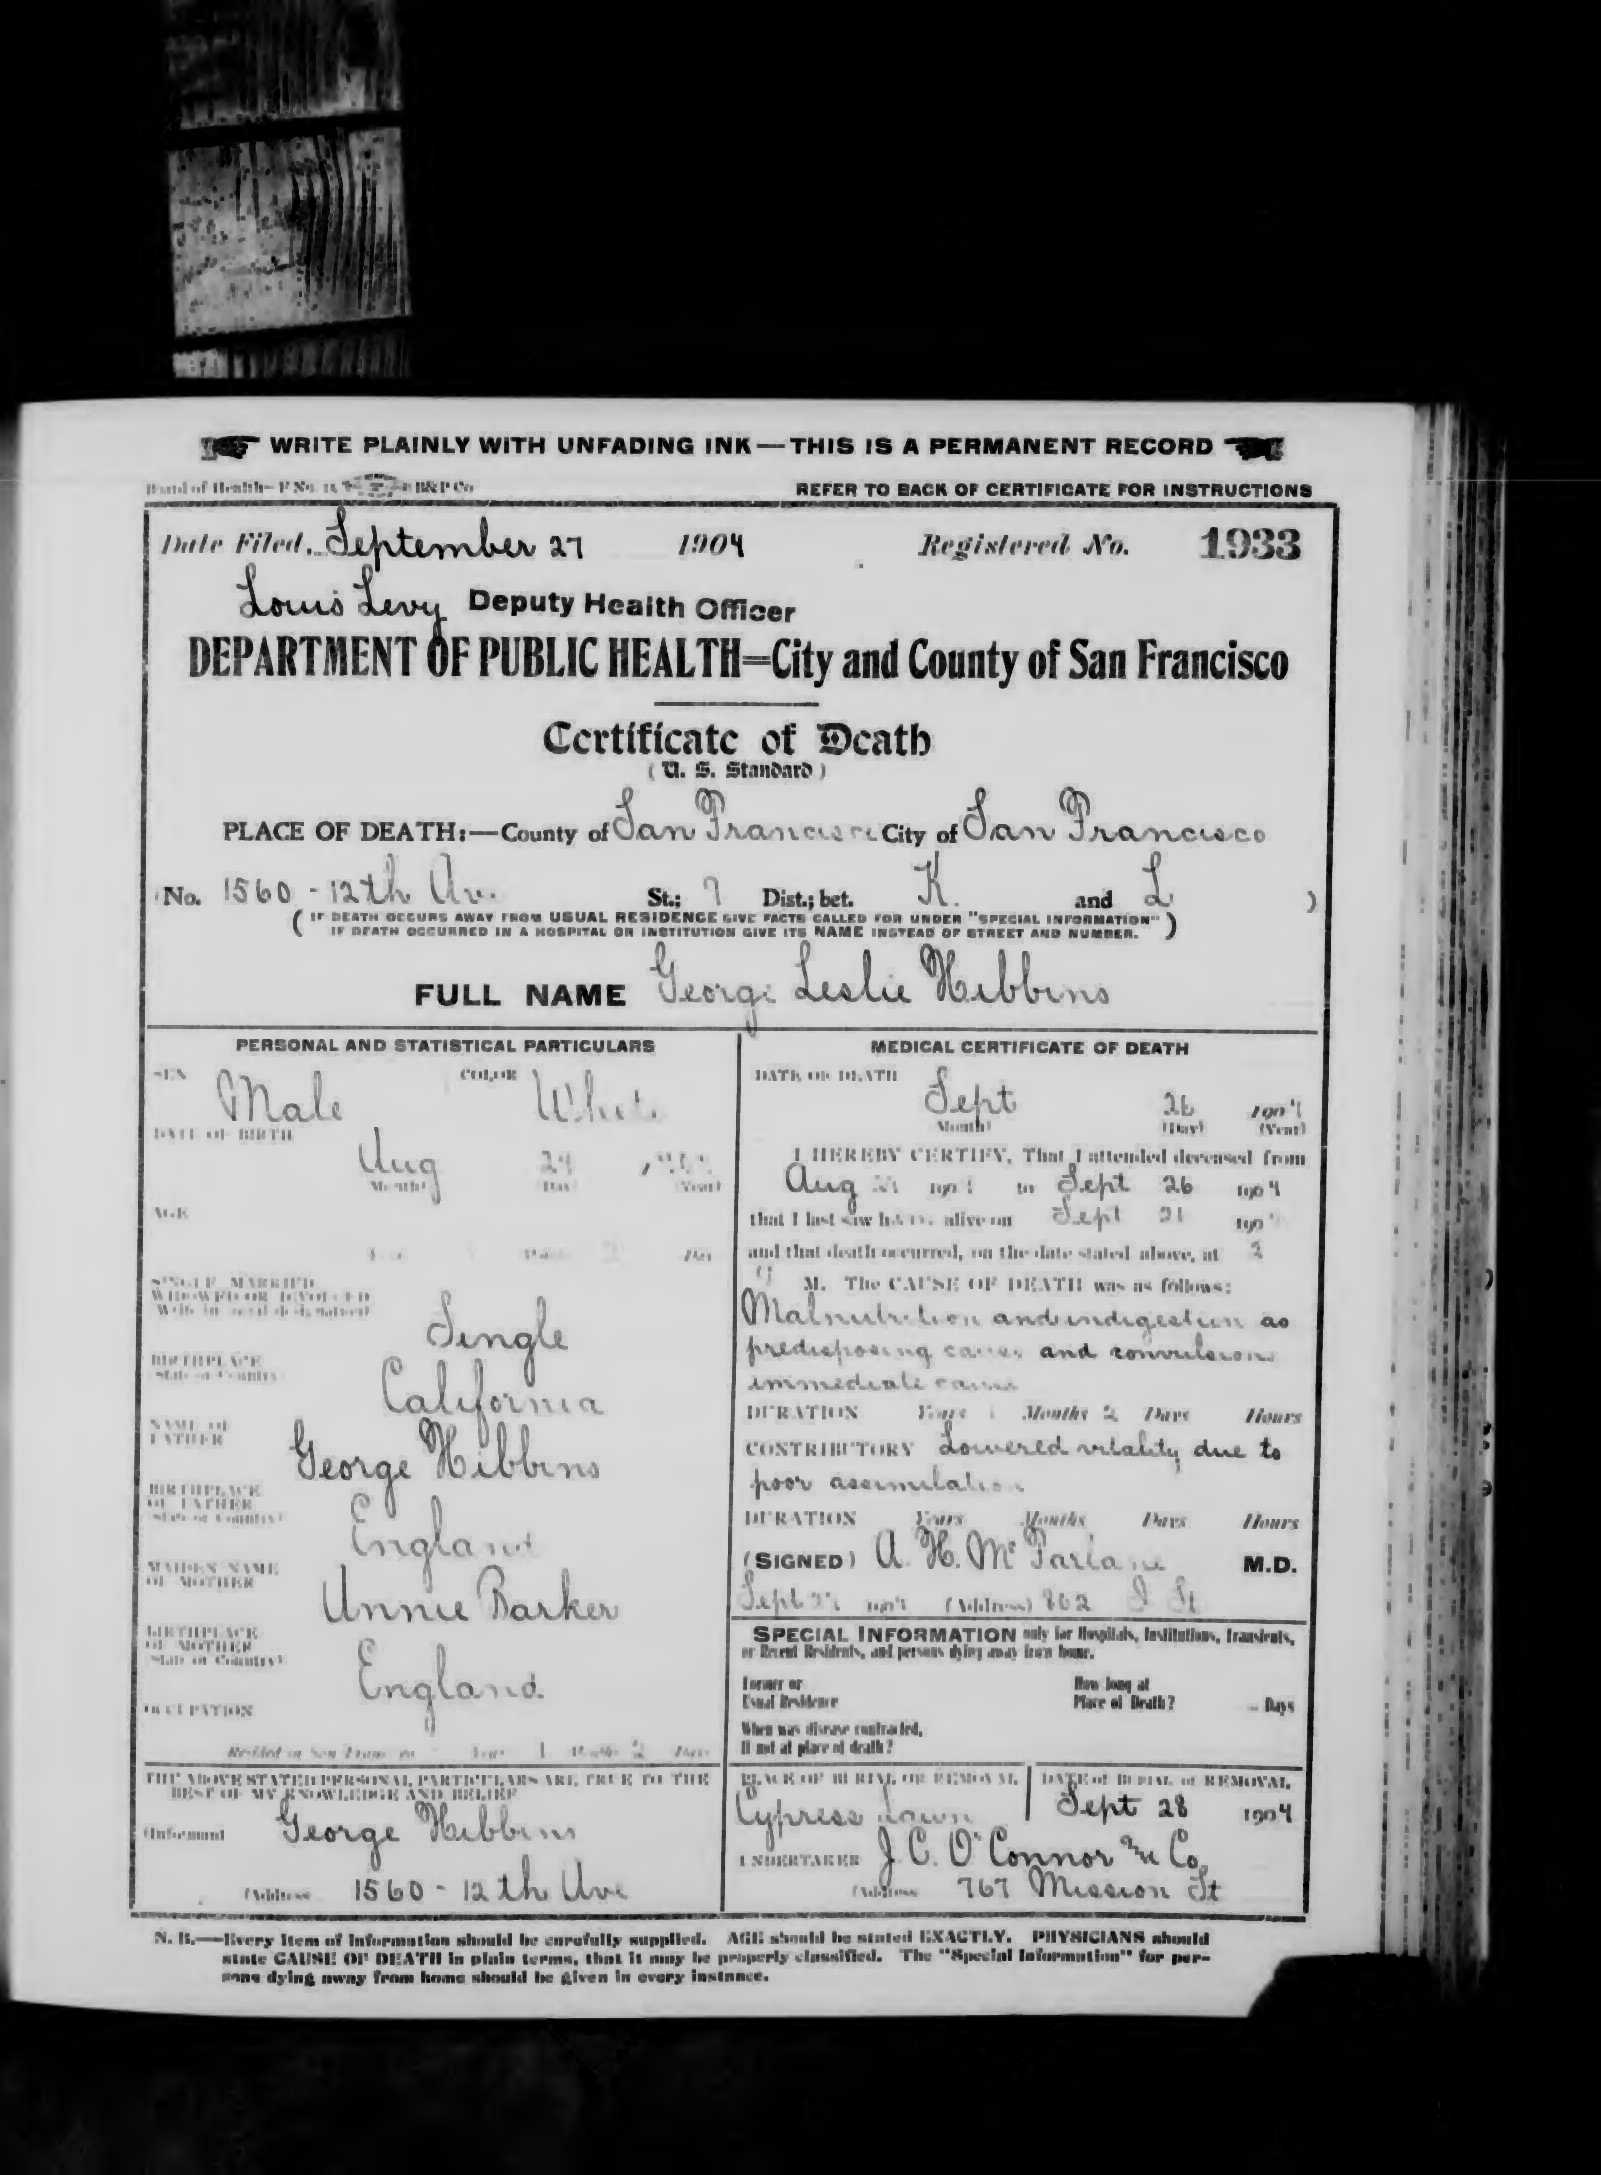 WRITE PLAINLY WITH UNFADING INK — THIS IS A PERMANENT RECORD
Board of Health—F No. B&P Co
REFER TO BACK OF CERTIFICATE FOR INSTRUCTIONS
Date Filed, September 27 1904 Registered No. 1933
Louis Levy Deputy Health Officer
DEPARTMENT OF PUBLIC HEALTH=City and County of San Francisco
Certificate of Death
( U. S. Standard )
PLACE OF DEATH:—County of San Francisco City of San Francisco
(No. 1560 - 12th Av. St.; 7 Dist.; bet. K. and L )
( IF DEATH OCCURS AWAY FROM USUAL RESIDENCE GIVE FACTS CALLED FOR UNDER "SPECIAL INFORMATION"
IF DEATH OCCURRED IN A HOSPITAL OR INSTITUTION GIVE ITS NAME INSTEAD OF STREET AND NUMBER. )
FULL NAME George Leslie Hibbins
PERSONAL AND STATISTICAL PARTICULARS
SEX Male COLOR White
DATE OF BIRTH
Aug 24
(Month) (Day) (Year)
AGE
SINGLE, MARRIED,
WIDOWED OR DIVORCED
(Write in social designation)
Single
BIRTHPLACE
(State or Country)
California
NAME OF
FATHER
George Hibbins
BIRTHPLACE
OF FATHER
(State or Country)
England
MAIDEN NAME
OF MOTHER
Annie Barker
BIRTHPLACE
OF MOTHER
(State or Country)
England
OCCUPATION
Resided in San Francisco Years 1 Months 2 Days
THE ABOVE STATED PERSONAL PARTICULARS ARE TRUE TO THE
BEST OF MY KNOWLEDGE AND BELIEF
(Informant George Hibbins
(Address 1560 - 12th Ave
MEDICAL CERTIFICATE OF DEATH
DATE OF DEATH
Sept 26 1904
(Month) (Day) (Year)
I HEREBY CERTIFY, That I attended deceased from
Aug 1904 to Sept 26 1904
that I last saw him alive on Sept 21 190
and that death occurred, on the date stated above, at 2
M. The CAUSE OF DEATH was as follows:
Malnutrition and indigestion as
predisposing cause and convulsions
immediate cause
DURATION Years 1 Months 2 Days Hours
CONTRIBUTORY Lowered vitality due to
poor assimilation
DURATION Years Months Days Hours
(SIGNED) A. H. McFarlane M.D.
Sept 27 1904 (Address) 862 I St
SPECIAL INFORMATION only for Hospitals, Institutions, Transients,
or Recent Residents, and persons dying away from home.
Former or
Usual Residence
How long at
Place of Death? Days
When was disease contracted,
If not at place of death?
PLACE OF BURIAL OR REMOVAL
Cypress Lawn
DATE of BURIAL or REMOVAL
Sept 28 1904
UNDERTAKER J. C. O'Connor & Co
(Address 767 Mission St
N. B.—Every item of information should be carefully supplied. AGE should be stated EXACTLY. PHYSICIANS should
state CAUSE OF DEATH in plain terms, that it may be properly classified. The "Special Information" for per-
sons dying away from home should be given in every instance.